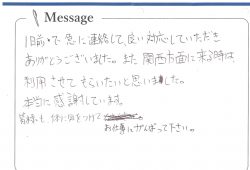 Message
1日前で急に連絡して、良い対応していただき
ありがとうございました。また関西方面に来る時は
利用させてもらいたいと思いました。
本当に感謝しています。
皆様も体に気をつけて
お仕事がんばって下さい。